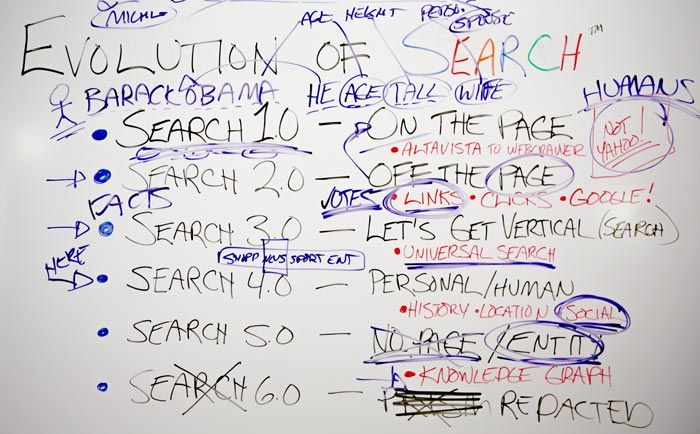 AGE HEIGHT SPOUSE
EVOLUTION OF SEARCH™
BARACK OBAMA HE AGE TALL WIFE HUMANS
• SEARCH 1.0 — ON THE PAGE
• ALTAVISTA TO WEBCRAWLER
NOT YAHOO!
• SEARCH 2.0 — OFF THE PAGE
FACTS VOTES • LINKS • CLICKS • GOOGLE!
• SEARCH 3.0 — LET'S GET VERTICAL (SEARCH)
• UNIVERSAL SEARCH
HERE NEWS SPORT ENT
• SEARCH 4.0 — PERSONAL/HUMAN
• HISTORY • LOCATION • SOCIAL
• SEARCH 5.0 — NO PAGE/ENTITY
• KNOWLEDGE GRAPH
• SEARCH 6.0 — REDACTED